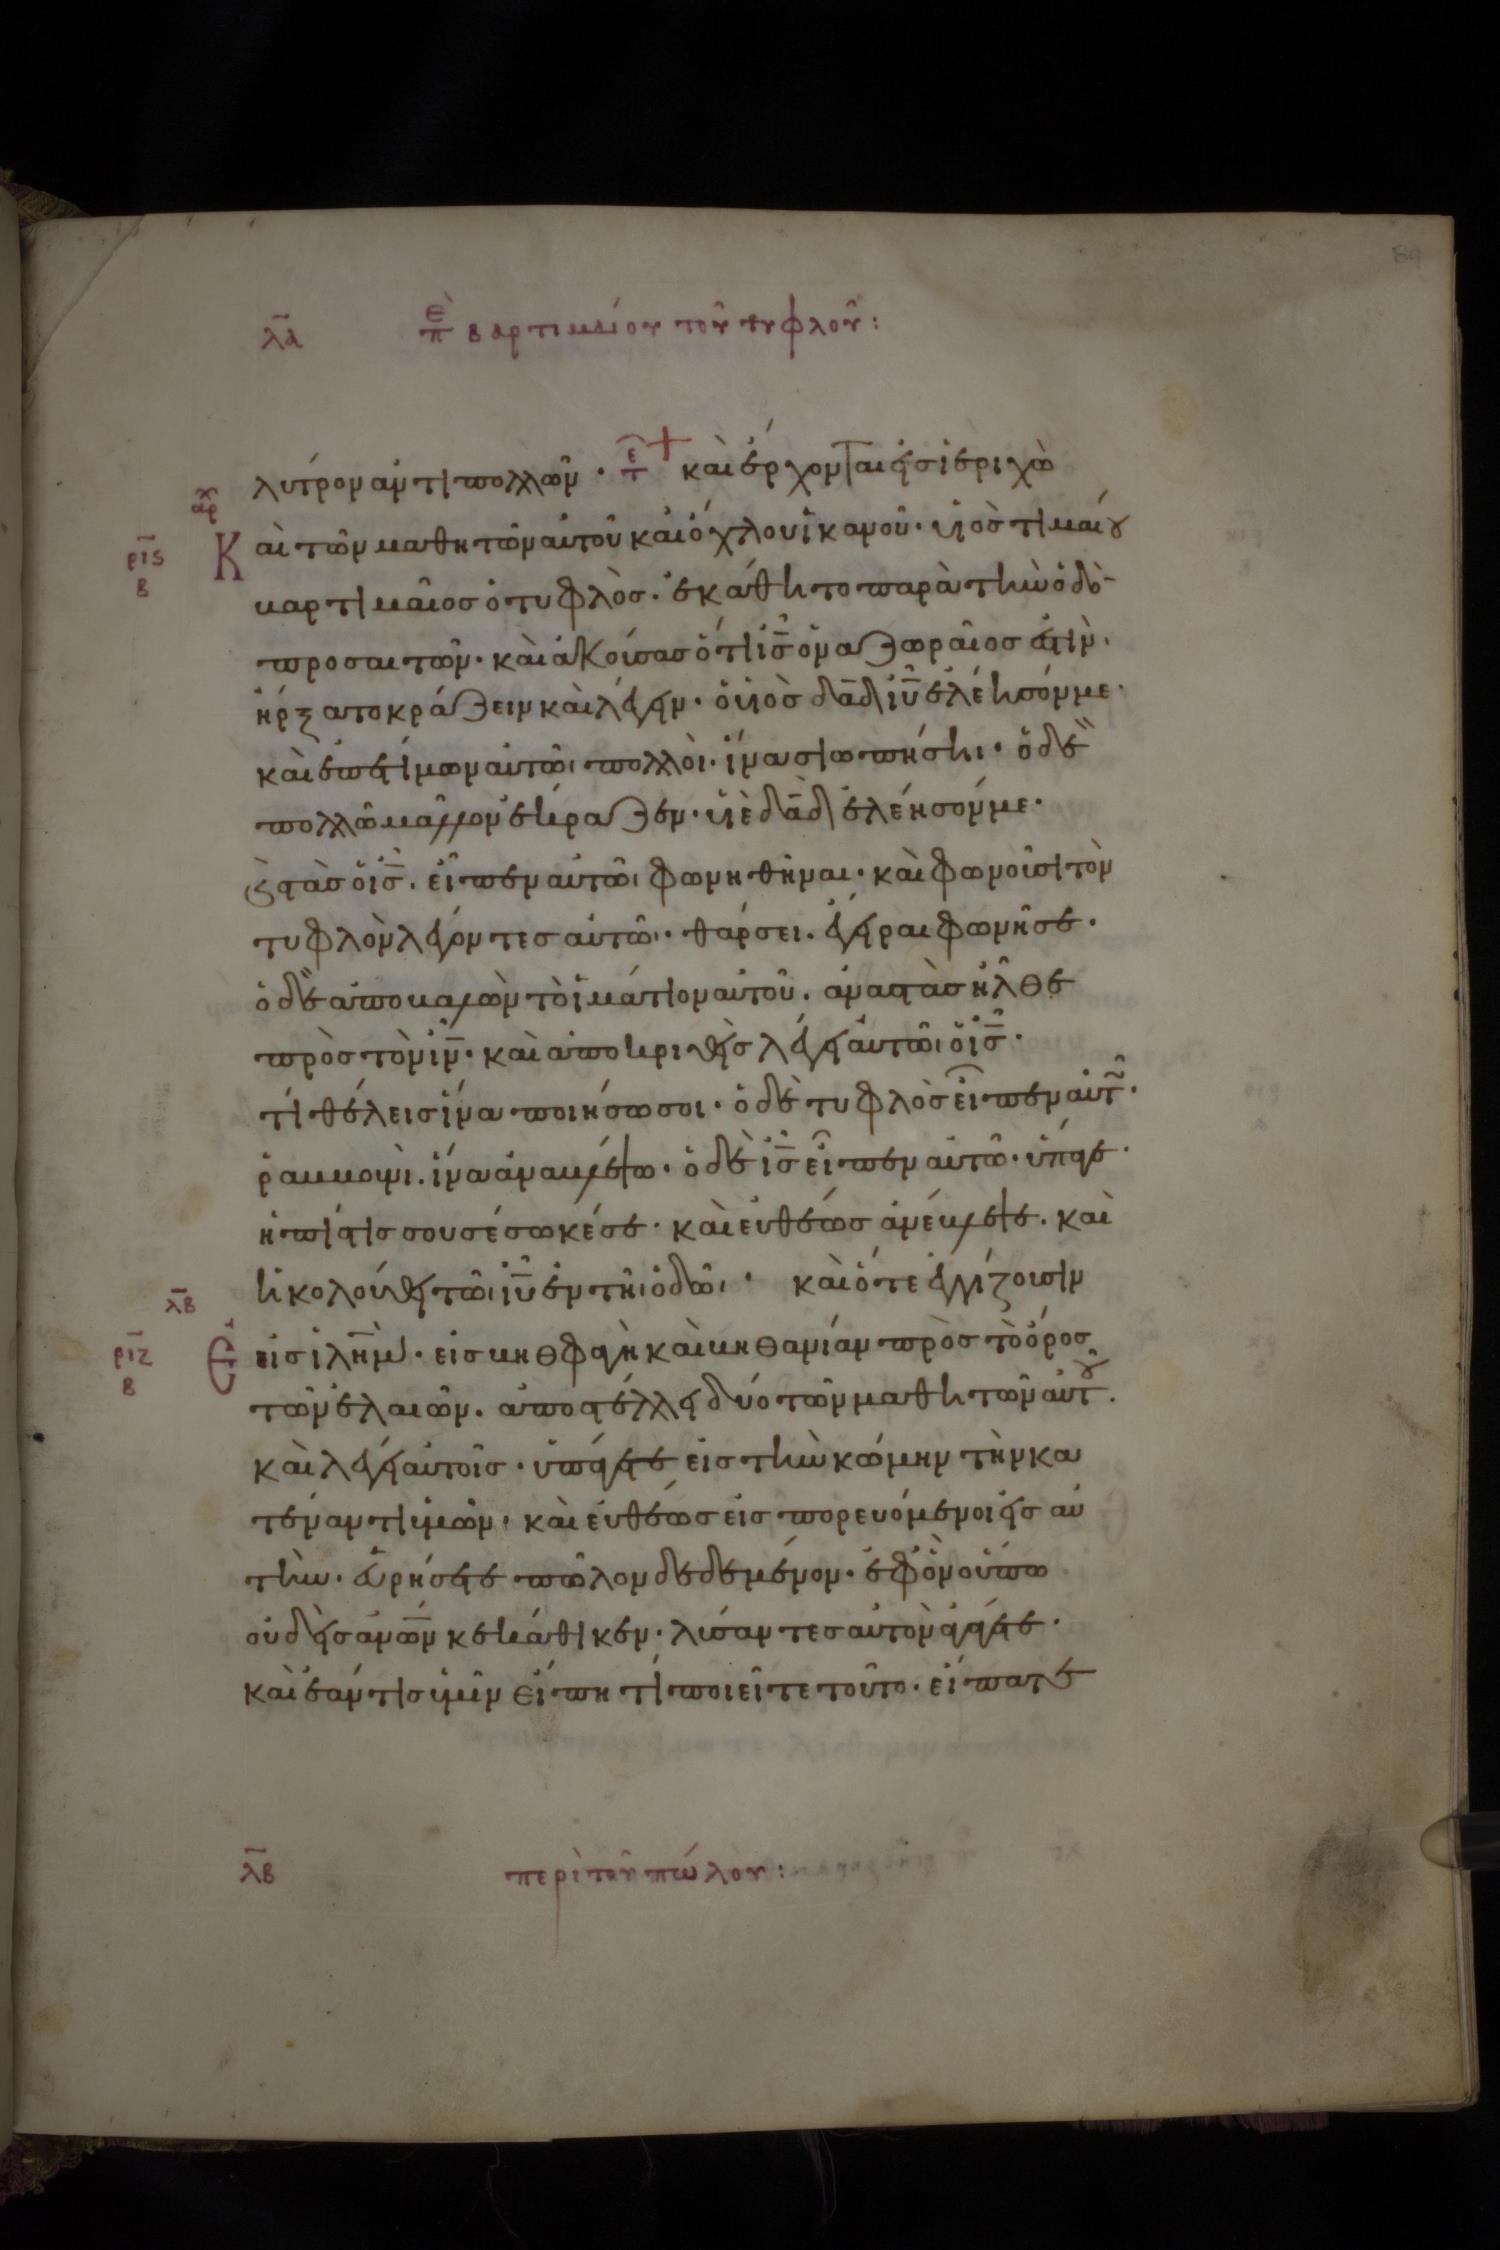 λα επ βαρτιμαίου τοῦ τυφλοῦ:
λύτρον ἀντὶ πολλῶν · τε + καὶ ἔρχονται εἰς ἱεριχὼ
αρχ
ρις β Καὶ τῶν μαθητῶν αὐτοῦ καὶ ὄχλου ἱκανοῦ · υἱὸς τιμαίου
βαρτιμαῖος ὁ τυφλὸς · ἐκάθητο παρὰ τὴν ὁδὸ-
προσαιτῶν · καὶ ἀκούσας ὅτι ις̅ ὁ ναζωραῖος ἐστὶν ·
ἤρξατο κράζειν καὶ λέγειν · ὁ υἱὸς δα̅δ ιυ̅ ἐλέησόν με ·
καὶ ἐπετίμων αὐτῶι πολλοὶ · ἵνα σιωπήσηι · ὁ δὲ
πολλῶ μᾶλλον ἔκραζεν · υἱὲ δα̅δ ἐλέησόν με ·
ϗ στὰς ὁ ις̅ . εἶπεν αὐτῶι φωνηθῆναι · καὶ φωνοῦσι τὸν
τυφλὸν λέγοντες αὐτῶι · θάρσει . ἔγειραι φωνῆ σε ·
ὁ δὲ ἀποβαλὼν τὸ ἱμάτιον αὐτοῦ . ἀναστὰς ἦλθε
πρὸς τὸν ιν̅ · καὶ ἀποκριθεὶς λέγει αὐτῶι ὁ ις̅ ·
τί θέλεις ἵνα ποιήσω σοι · ὁ δὲ τυφλὸς εἶπεν αὐτ ·
ῥαββονὶ . ἵνα ἀναβλέψω · ὁ δὲ ις̅ εἶπεν αὐτῶ · ὕπαγε ·
ἡ πίστις σου σέσωκέ σε · καὶ εὐθέως ἀνέβλεψε . καὶ
ἠκολούθει τῶι ιυ̅ ἐν τῆι ὁδῶι · καὶ ὅτε ἐγγίζουσιν
λβ
ριζ β Εεἰς ιλη̅μ · εἰς βηθφαγὴ καὶ βηθανίαν πρὸς τὸ ὄρος
τῶν ἐλαιῶν . ἀποστέλλει δύο τῶν μαθητῶν αὐτοῦ .
καὶ λέγει αὐτοῖς · ὑπάγετε εἰς τὴν κώμην τὴν κα
τέναντι ὑμῶν · καὶ εὐθέως εἰσπορευόμενοι εἰς αὐ
τὴν · εὑρήσετε πῶλον δεδεμένον · ἐφ ὃν οὔπω
οὐδεὶς ανω̅ν κεκάθικεν · λύσαντες αὐτὸν ἀγάγετε ·
καὶ ἐάν τις ὑμῖν εἴπη τί ποιεῖτε τοῦτο · εἴπατε
λβ περὶ τοῦ πώλου: